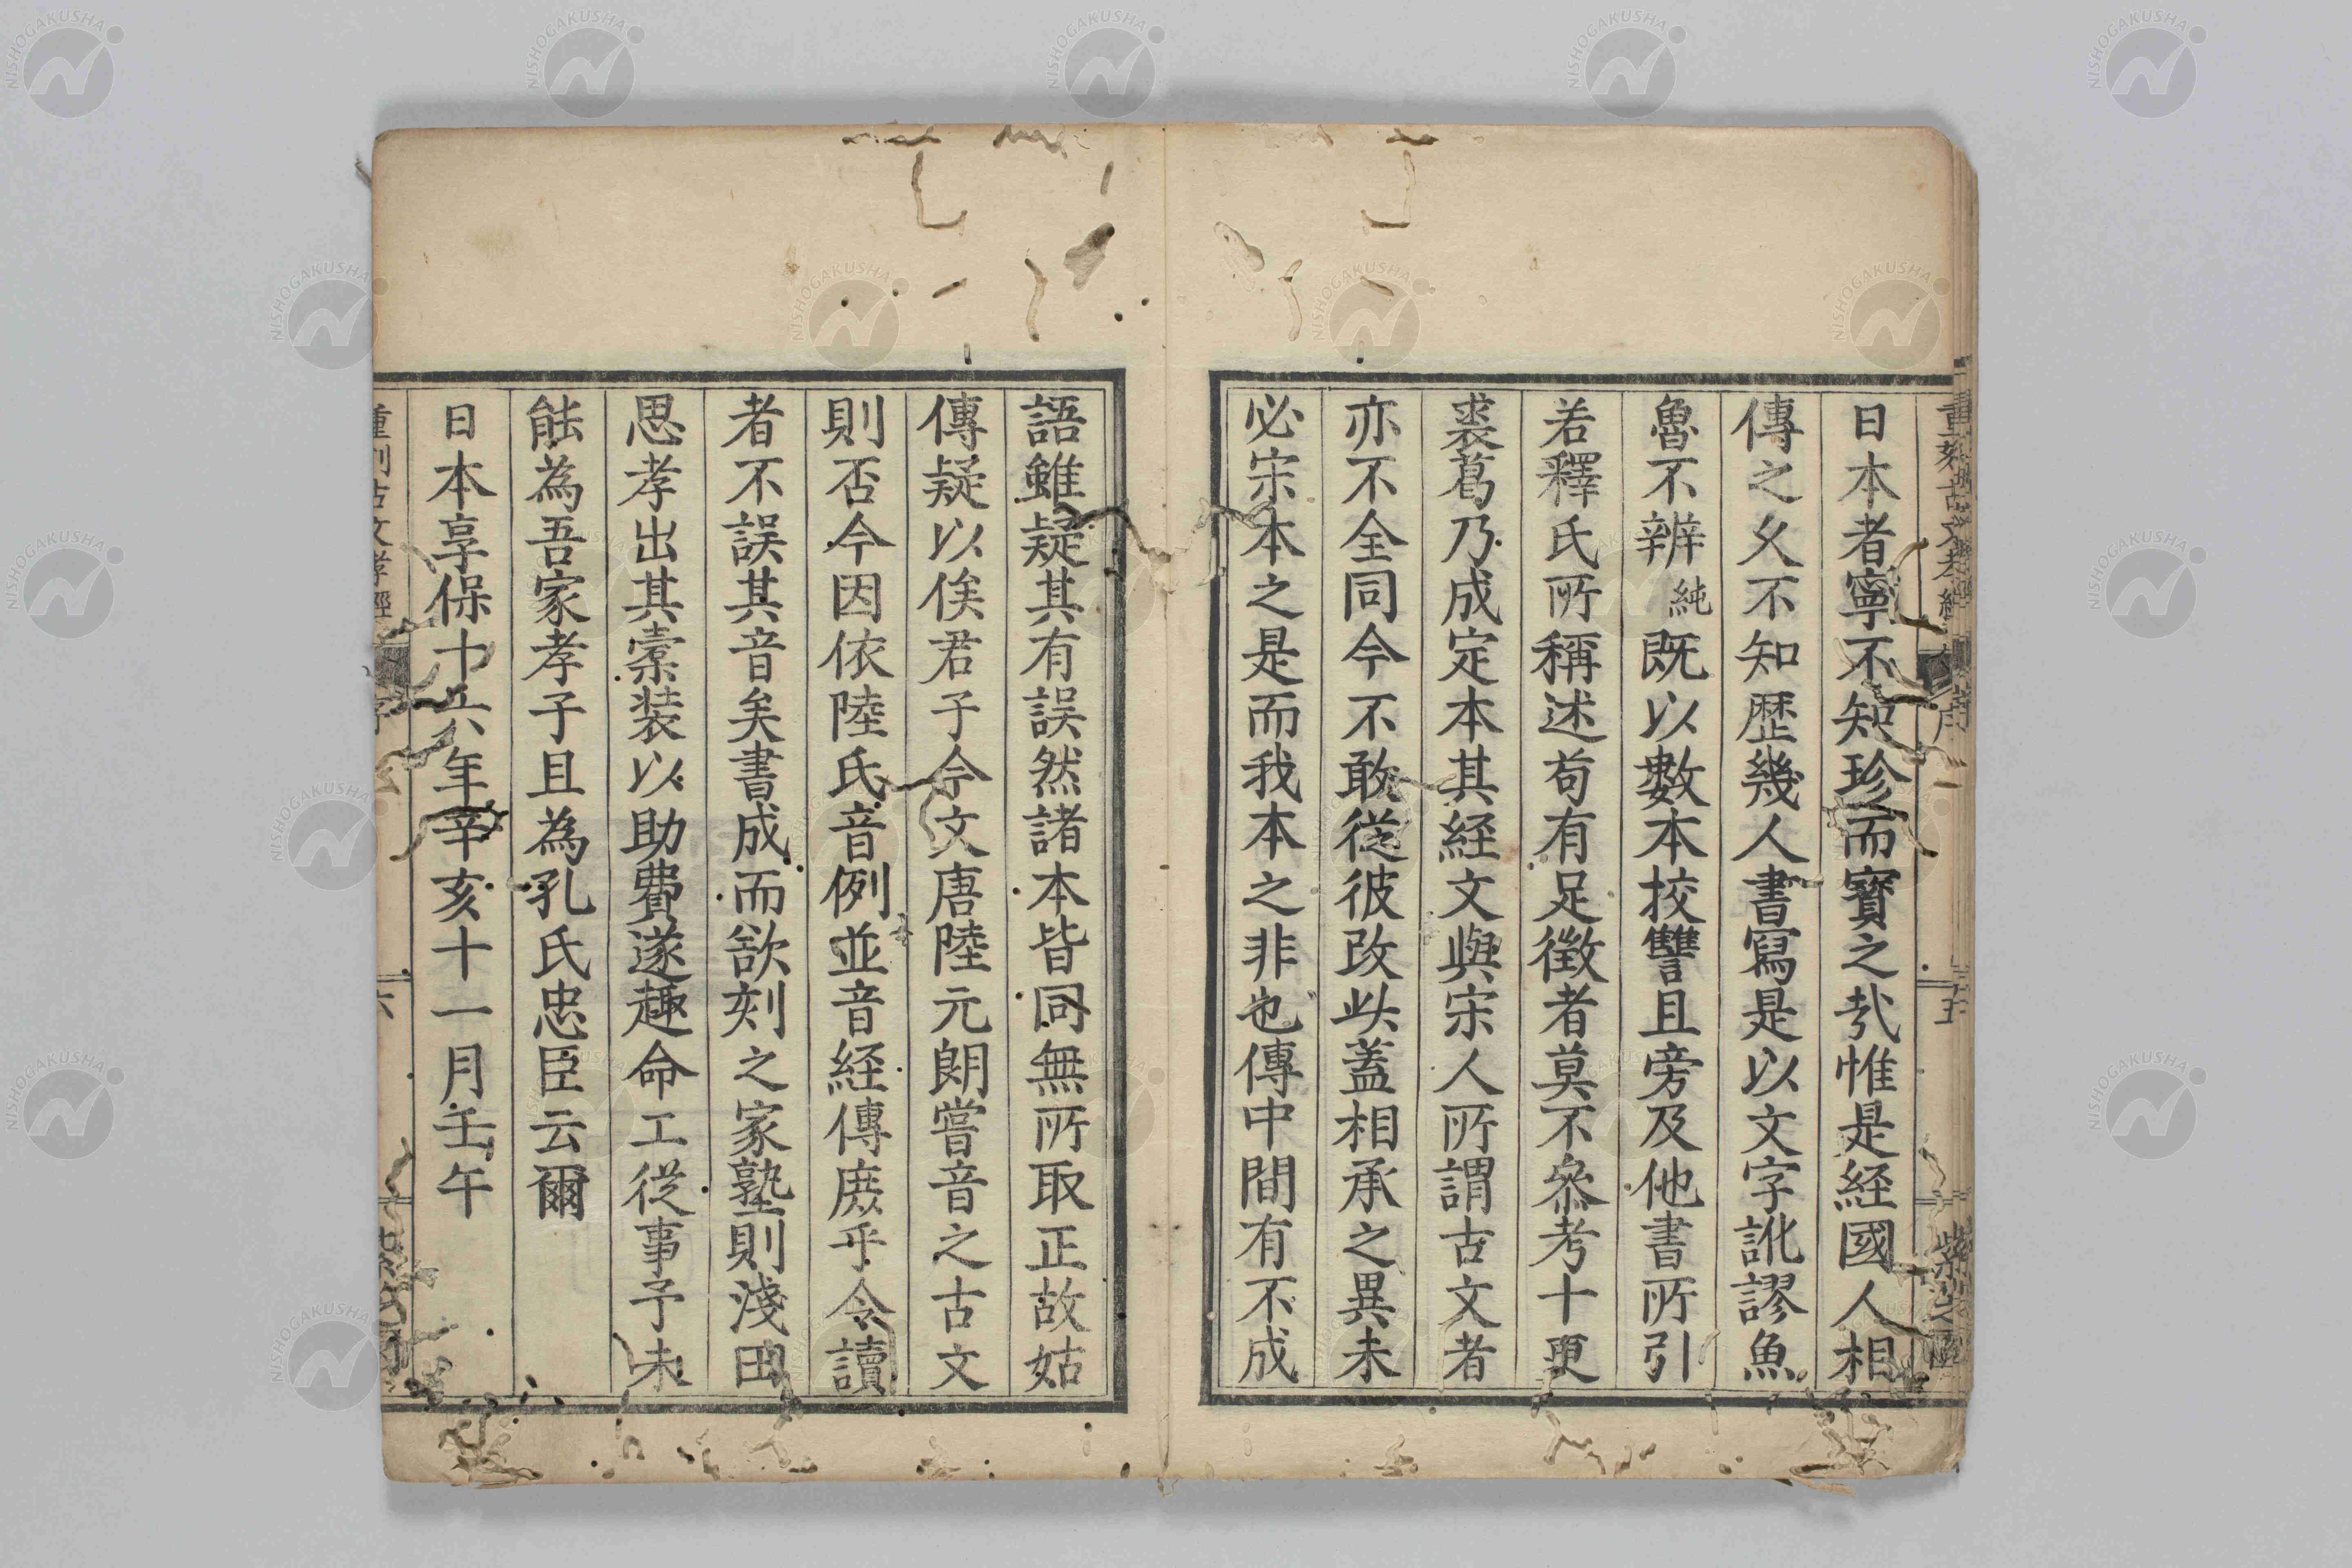 日本者寧不知珍而寳之㢤惟是経國人相
傳之久不知歴幾人書寫是以文字訛謬魚
魯不辨純既以數本挍讐且旁及他書所引
若釋氏所稱述苟有足徴者莫不叅考十更
裘葛乃成定本其経文與宋人所謂古文者
亦不全同今不敢従彼改此蓋相承之異未
必宋本之是而我本之非也傳中間有不成
語雖疑其有誤然諸本皆同無所取正故姑
傳疑以俟君子今文唐陸元朗嘗音之古文
則否今因依陸氏音例並音経傳庻乎令讀
者不誤其音矣書成而欲刻之家塾則淺田
思孝出其槖装以助費遂趣命工従事予未
能為吾家孝子且為孔氏忠臣云爾
日本享保十六年辛亥十一月壬午
NISHOGAKUSHA